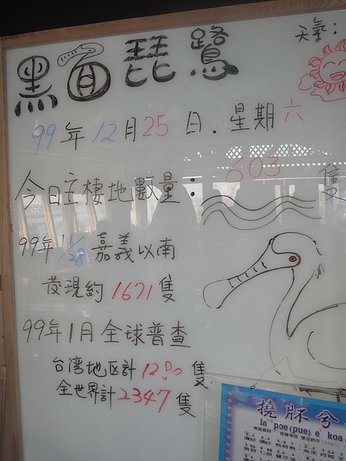 黑面琵鷺
天氣:
99年12月25日.星期六
今日主棲地數量:603隻
99年11/28嘉義以南
發現約1671隻
99年1月全球普查
台湾地区計1280隻
全世界計2347隻
撓杯兮
la poe(pue) e koa